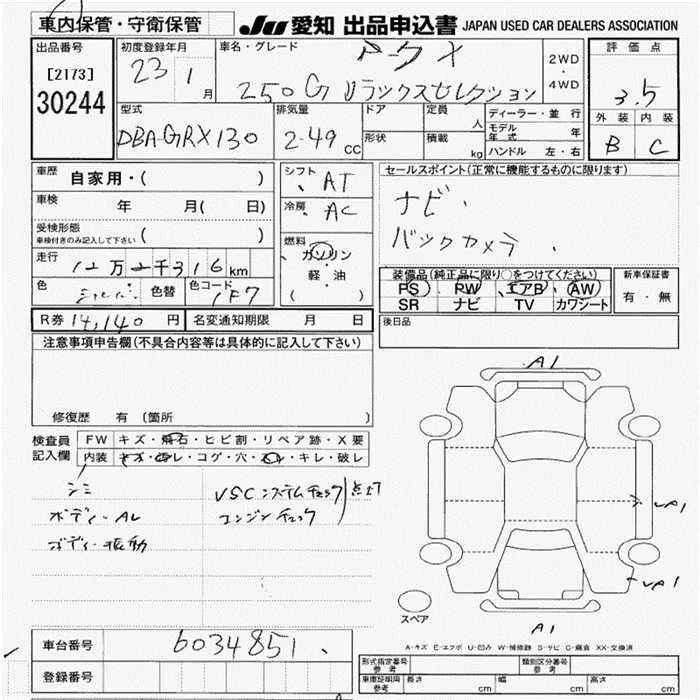 車内保管・守衛保管 JU 愛知 出品申込書 JAPAN USED CAR DEALERS ASSOCIATION
出品番号 初度登録年月 車名・グレード マークX 2WD・4WD 評価点
[2173] 23 1月 250G リラックスセレクション 3.5
30244
外装 内装
B C
型式 排気量 ドア 定員 人 ディーラー・並行
DBA-GRX130 2.49cc 形状 積載 kg モデル年式 年
ハンドル 左・右
車歴 自家用・( )
シフト AT
セールスポイント(正常に機能するものに限ります)
車検 年 月( 日)
冷房 AC
ナビ.
受検形態
車検付きのみ記入して下さい ( )
バックカメラ
燃料 ガソリン
軽・油
( )
走行 12万2千316km
色 シルバー 色替 色コード 1F7
装備品(純正品に限り○をつけてください) 新車保証書
PS PW エアB AW 有・無
SR ナビ TV カワシート
R券 14,140円 名変通知期限 月 日
後日品
注意事項申告欄(不具合内容等は具体的に記入して下さい)
修復歴 有 (箇所
検査員記入欄 FW キズ・飛石・ヒビ割・リペア跡・X要
内装 キズ・汚レ・コゲ・穴・スレ・キレ・破レ
シミ VSCシステムチェック 点灯
ボディーAL エンジンチェック
ボディー振動
A1
A1
A1
A1
スペア
A-キズ E-エクボ U-凹み W-補修跡 S-サビ C-腐食 XX-交換済
車台番号 6034851
登録番号
形式指定番号 参考 類別区分番号 参考
車庫証明用 参考 長さ cm 幅 cm 高さ cm